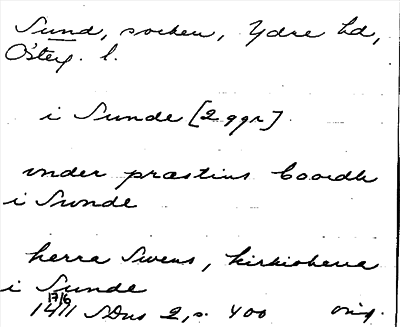 Sund, socken, Ydre hd,
Österg. l.
i Sunde [2 ggr]
vnder præstins boordh
i Swnde
herra Swens, kirkioherra
i Sunde
17/6
1411 SDns 2, s. 400 orig.